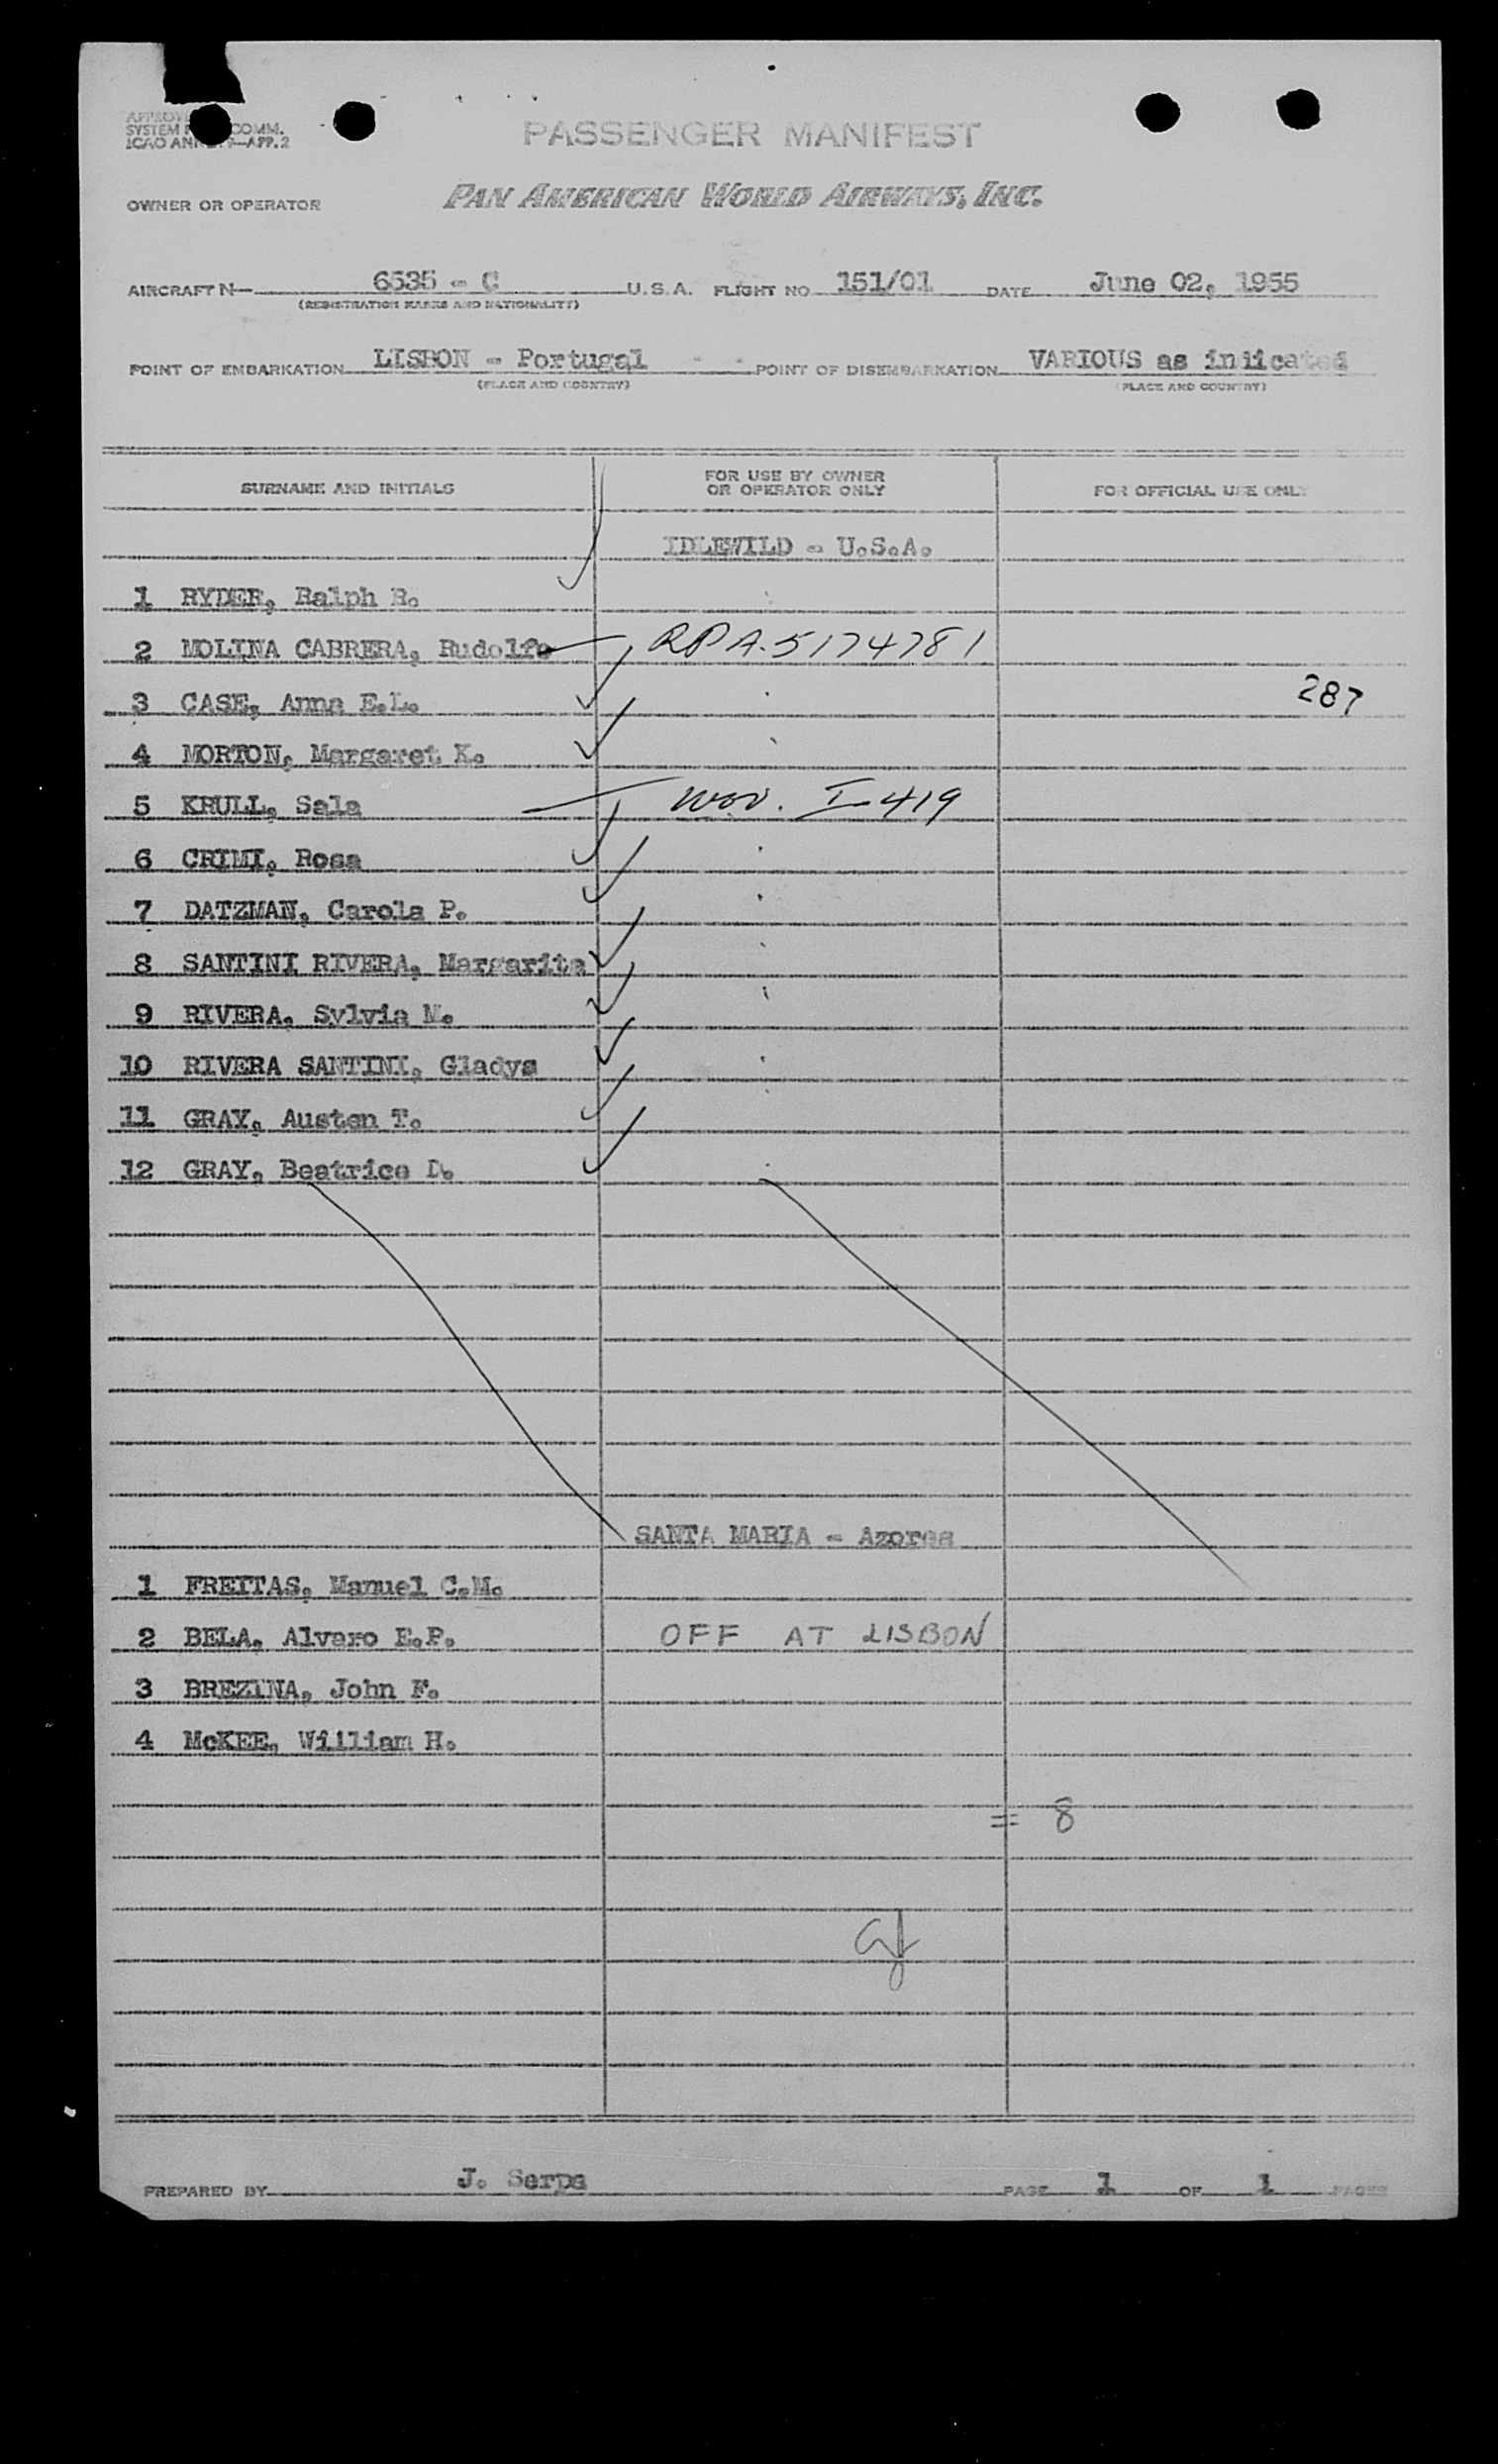 SYSTEM COMM.
ICAO ANN —APP.2
PASSENGER MANIFEST
OWNER OR OPERATOR PAN AMERICAN WORLD AIRWAYS, INC.
AIRCRAFT N— 6535 - C U.S.A. FLIGHT NO 151/01 DATE June 02, 1955
(REGISTRATION MARKS AND NATIONALITY)
POINT OF EMBARKATION LISBON - Portugal POINT OF DISEMBARKATION VARIOUS as indicated
(PLACE AND COUNTRY) (PLACE AND COUNTRY)
SURNAME AND INITIALS FOR USE BY OWNER OR OPERATOR ONLY FOR OFFICIAL USE ONLY
IDLEWILD - U.S.A.
1 RYDER, Ralph R.
2 MOLINA CABRERA, Rudolfo RPA-5174781
3 CASE, Anna E.L. 287
4 MORTON, Margaret K.
5 KRULL, Sala I-419
6 CRIMI, Rosa
7 DATZMAN, Carola P.
8 SANTINI RIVERA, Margarita
9 RIVERA, Sylvia M.
10 RIVERA SANTINI, Gladys
11 GRAY, Austen T.
12 GRAY, Beatrice D.
SANTA MARIA - Azores
1 FREITAS, Manuel C.M.
2 BELA, Alvaro E.P. OFF AT LISBON
3 BREZINA, John F.
4 McKEE, William H.
= 8
PREPARED BY J. Serpa PAGE 1 OF 1 PAGES